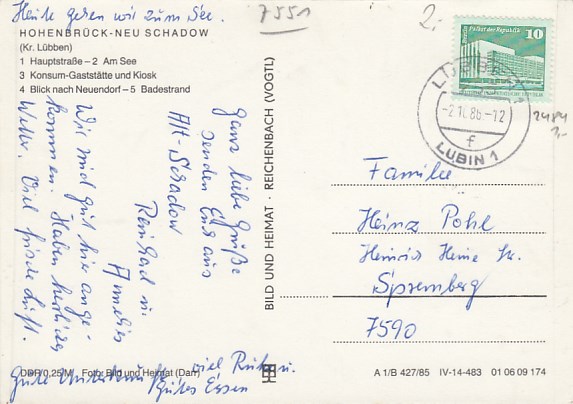 Heute gehen wir zum See.
7551
2,-
HOHENBRÜCK-NEU SCHADOW
(Kr. Lübben)
1 Hauptstraße – 2 Am See
3 Konsum-Gaststätte und Kiosk
4 Blick nach Neuendorf – 5 Badestrand
Ganz liebe Grüße
senden Euch aus
Alt-Schadow
Reinhard u.
Annelies
Wir sind gut hier ange-
kommen. Haben herrliches
Wetter. Viel frische Luft.
viel Ruhe u.
Gute Unterkunft
Gutes Essen
DDR 0,25 M Foto: Bild und Heimat (Darr)
BILD UND HEIMAT · REICHENBACH (VOGTL)
Palast der Republik
10
LÜBBEN 1
-2.10.86-12
f
LUBIN 1
2484
2,-
Familie
Heinz Pohl
Heinrich Heine Str.
Spremberg
7590
A 1/B 427/85 IV-14-483 01 06 09 174